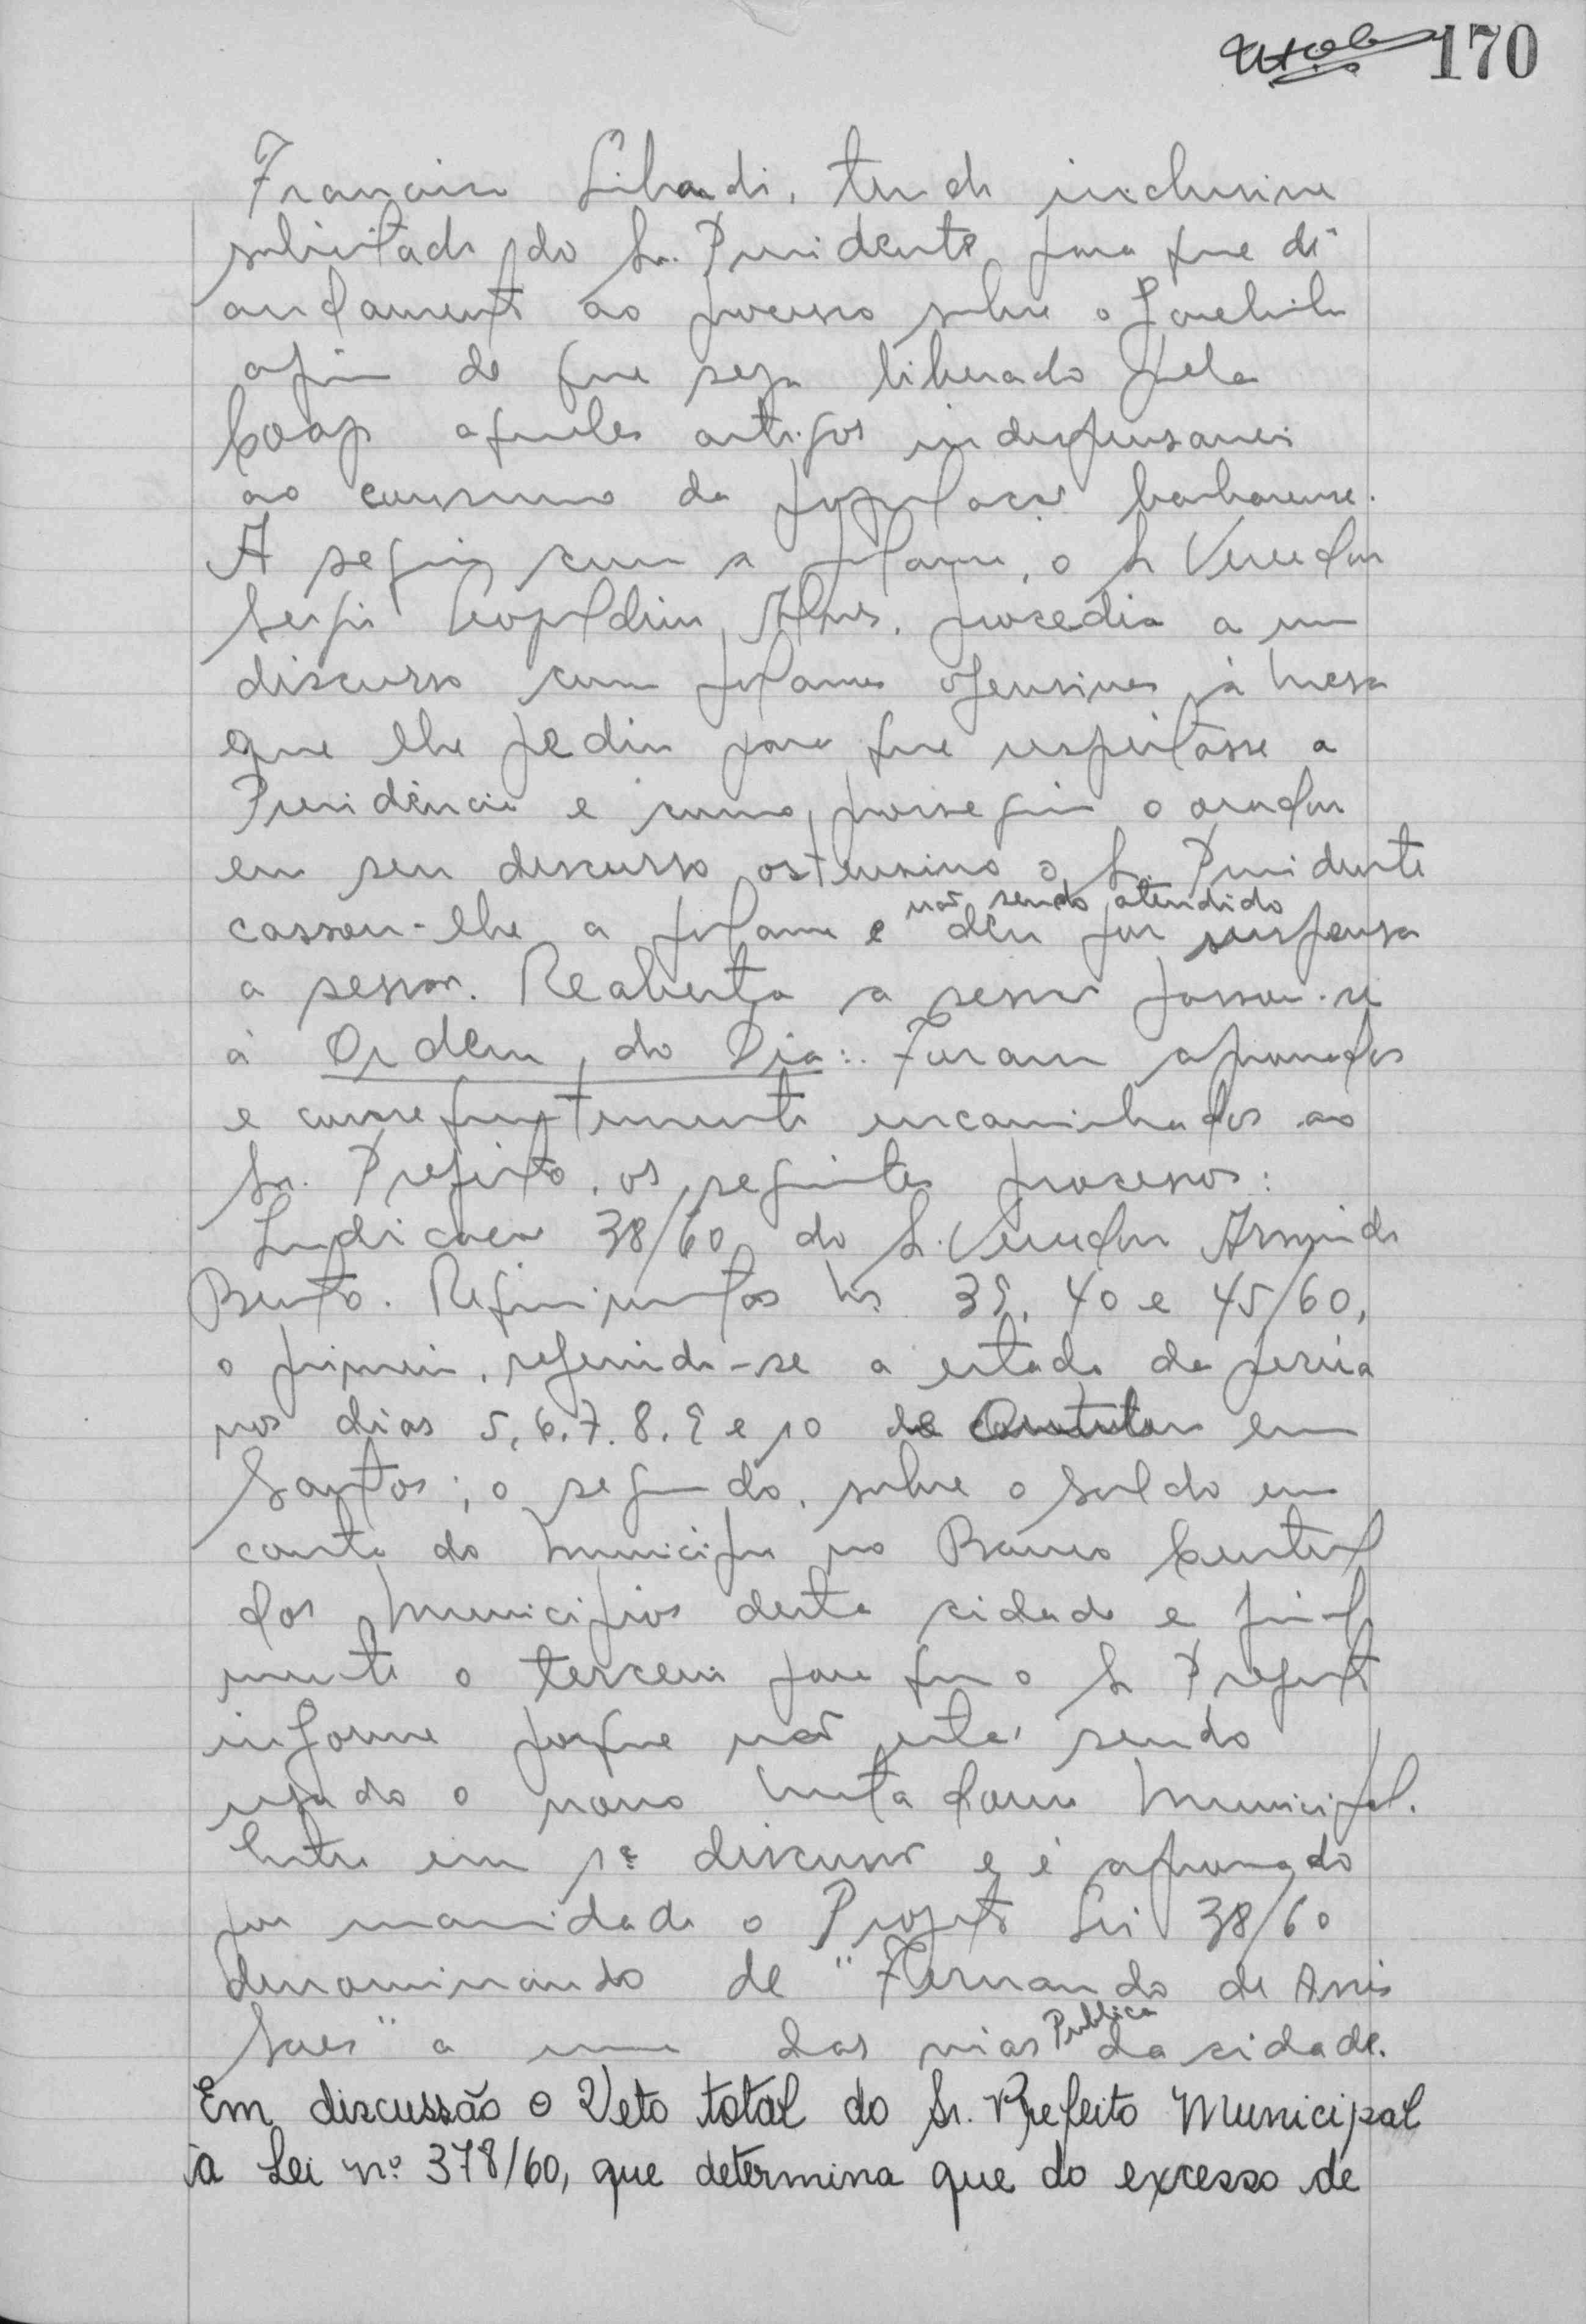 170
Francisco Libardi, tendo inclusive
solicitado do Sr. Presidente para que dê
andamento ao processo sobre o
afim de que seja liberado pela
Coap aqueles artigos indispensaveis
ao consumo da população barbarense.
A seguir com a palavra, o Sr Vereador
Sergio Leopoldino Alves, procedia a um
discurso com palavras ofensivas à Mesa
que lhe pediu para que respeitasse a
Presidência e como prosseguiu o orador
em seu discurso ostensivo o Sr. Presidente
cassou-lhe a palavra e não sendo atendido deu por suspensa
a sessão. Reaberta a sessão passou-se
à Ordem do Dia:. Foram aprovados
e consequentemente encaminhados ao
Sr. Prefeito, os seguintes processos:
Indicação 38/60 do Sr. Vereador Armindo
Bento. Requerimentos Ns. 39, 40 e 45/60,
o primeiro, referindo-se a estada da perúa
nos dias 5, 6, 7, 8, 9 e 10 de Outubro em
Santos; o segundo, sobre o saldo em
conta do Municipio no Banco Central
dos Municipios desta cidade e final
mente o terceiro para que o Sr Prefeito
informe porque não está sendo
usado o novo Matadouro Municipal.
Entra em 1ª discussão e é aprovado
por unanimidade o Projeto Lei 38/60
denominando de "Fernando de Assis
Saes" a uma das vias Publica da cidade.
Em discussão o Veto total do Sr. Prefeito Municipal
à Lei nº 378/60, que determina que do excesso de